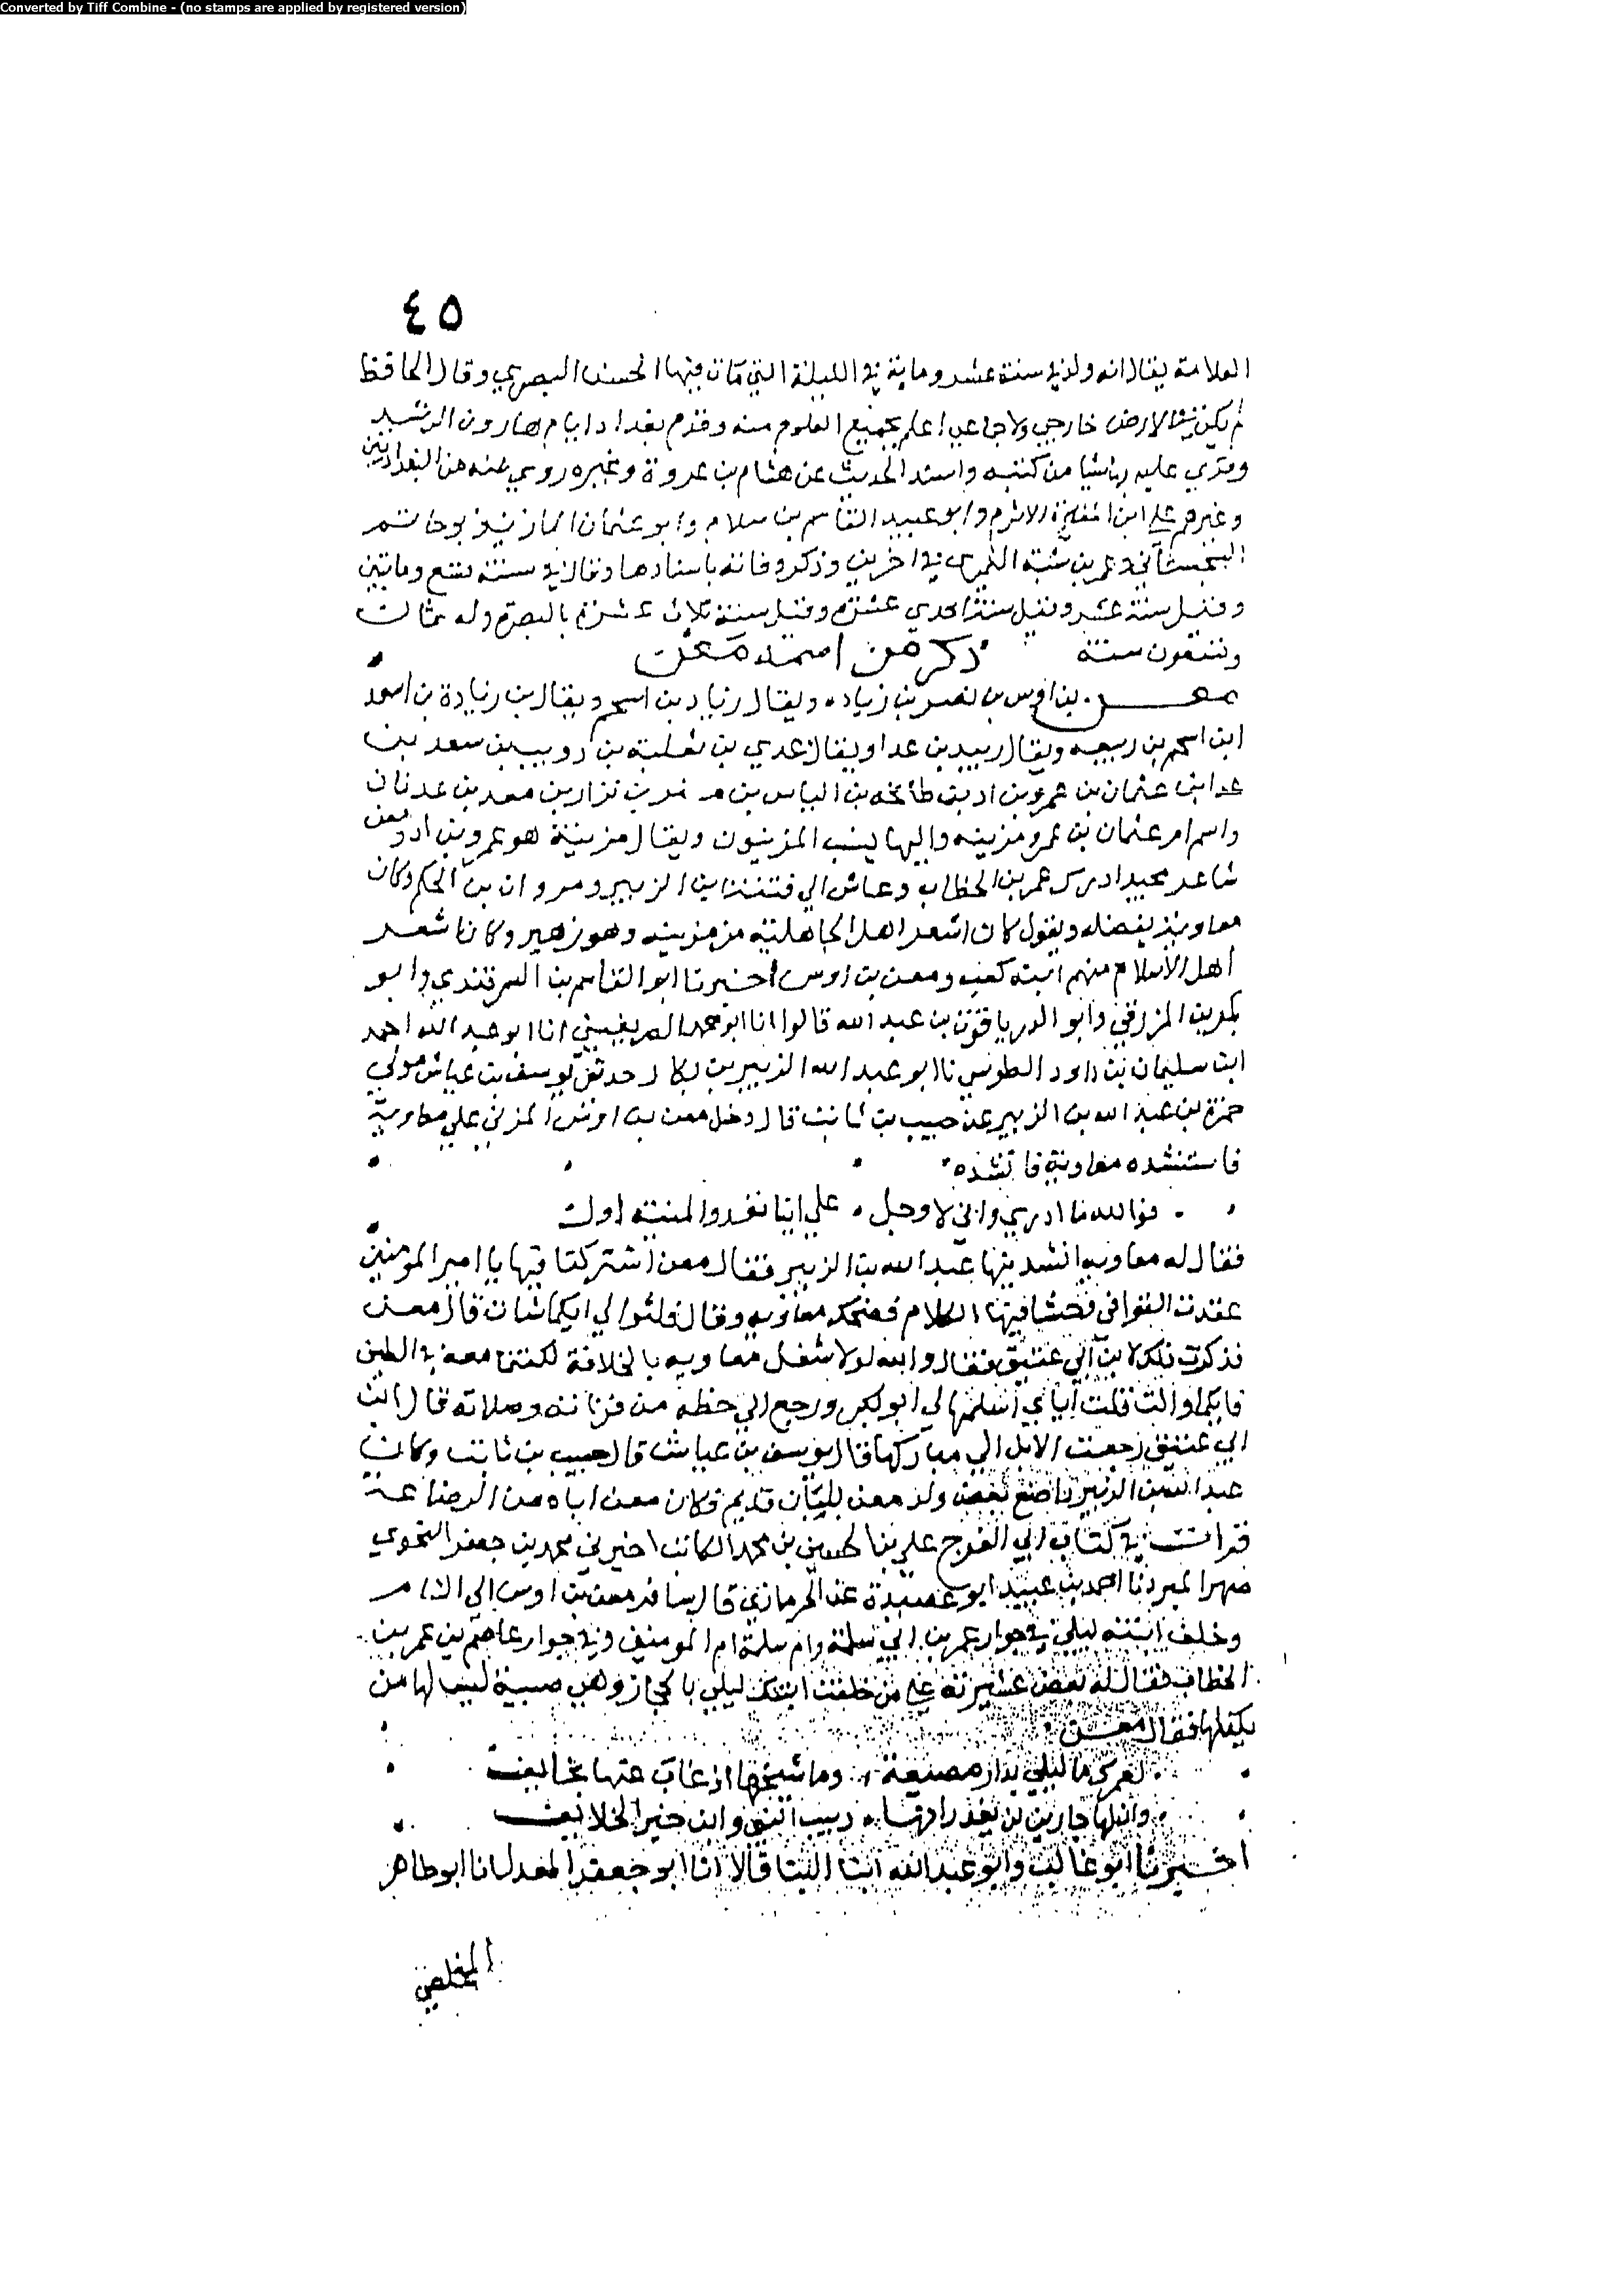 Converted by Tiff Combine - (no stamps are applied by registered version)
٤٥
العلامة يقال انه ولد في سنة عشر وماية في الليلة التي مات فيها الحسن البصري وقال الحافظ
لم يكن في الارض خارجي ولا جماعي اعلم بجميع العلوم منه وقدم بغداد ايام هارون الرشيد
وقري عليه بها اشيا من كتبه واسند الحديث عن هشام بن عروة وغيره روي عنه من البغداديين
وغيرهم علي ابن المغيرة الاثرم وابو عبيد القاسم بن سلام وابو عثمان المازني وابو حاتم
السجستاني وعمر بن شبة النميري في اخرين وذكر وفاته باسنادها وقال في سنة تسع وماتين
وقيل سنة عشر وقيل سنة احدي عشرة وقيل سنة ثلاث عشرة بالبصرة وله ثمان
وتسعون سنة ذكر من اسمه معن
معن بن اوس بن نصر بن زياده ويقال زياد بن اسحم ويقال بن زيادة بن اسعد
ابن اسحم بن ربيعه ويقال ربيد بن عدا ويقال عدي بن ثعلبة بن دويب بن سعد بن
عدا بن عثمان بن عمرو بن اد بن طابخه بن الياس بن مضر بن نزار بن معد بن عدنان
واسم ام عثمان بن عمرو مزينه واليها ينسب المزنيون ويقال مزينة هو عمرو بن اد ومعن
شاعر مجيد ادرك عمر بن الخطاب وعاش الي فتنة ابن الزبير ومروان بن الحكم وكان
معاوية يفضله ويقول كان اشعر اهل الجاهلية من مزينه وهو زهير وكان اشعر
اهل الاسلام منهم ابنه كعب ومعن بن اوس اخبرنا ابو القاسم بن السمرقندي وابو
بكر بن المزرفي وابو الدر ياقوت بن عبد الله قالوا انا ابو محمد الصريفيني انا ابو عبد الله احمد
ابن سليمان بن داود الطوسي نا ابو عبد الله الزبير بن بكار حدثني يوسف بن عياش مولي
حمزة بن عبد الله بن الزبير عن حبيب بن ثابت قال دخل معن بن اوس المزني علي معاوية
فاستنشده معاوية فانشده
فوالله ما ادري واني لاوجل علي اينا تغدوا المنية اول
فقال له معاويه انشدنيها عبد الله بن الزبير فقال معن اشتركنا فيها يا امير المومنين
عقدت القوافي وحشا فيها الكلام فضحك معاويه وقال
فذكرت ذلك لابن ابي عتيق فقال والله لولا شغل معاويه بالخلافة لكنتما معه في الطين
ابي عتيق رجعت الابل الي مباركها قال يوسف بن عياش قال حبيب بن ثابت وكان
عبد الله بن الزبير
قرات في كتاب ابي الفرج علي بن الحسين بن محمد الكاتب اخبرني محمد بن جعفر النحوي
صهر المبرد نا احمد بن عبيد ابو عصيدة عن الحرمازي قال سافر معن بن اوس الي الشام
وخلف ابنته ليلي في جوار عمر بن ابي سلمة وام سلمة ام المومنين وفي جوار عاصم بن عمر بن
الخطاب فقال له بعض عشيرته علي من خلفت ابنتك ليلي بالحجاز وهي صبية ليس لها من
يكفلها فقال معن
لعمرك ما ليلي بدار مضيعة وما شيخها اذ غاب عنها بخايف
وان لها جارين لن يغدرا بها ربيب النبي وابن خير الخلايف
اخبرنا ابو غالب وابو عبد الله ابنا البنا قالا انا ابو جعفر المعدل انا ابو طاهر
المخلص